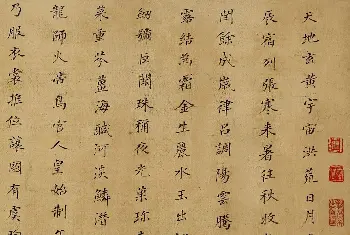 天地玄黄宇宙洪荒日月
辰宿列張寒来暑往秋收
閏餘成歲律呂調陽雲騰
露結為霜金生麗水玉出
劒號巨闕珠稱夜光菓珍
菜重芥薑海鹹河淡鱗潛
龍師火帝鳥官人皇始制
乃服衣裳推位讓國有虞